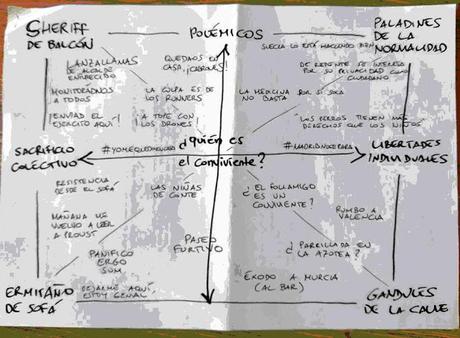 SHERIFF
DE BALCÓN
POLÉMICOS
PALADINES
DE LA
NORMALIDAD
LANZALLAMAS
DE ALCALDE
ENARDECIDO
QUEDAOS EN
CASA, ¡CABRONES!
SUECIA LO ESTÁ HACIENDO BIEN
DE REPENTE SE INTERESA
POR SU PRIVACIDAD COMO
CIUDADANO
MONITORÉADNOS
A TODOS
LA CULPA ES DE
LOS RUNNERS
LA MEDICINA POR SÍ SOLA
NO BASTA
¡ENVIAD EL
EJÉRCITO AQUÍ!
A TOPE CON
LOS DRONES!
LOS PERROS TIENEN MÁS
DERECHOS QUE LOS NIÑOS
SACRIFICIO
COLECTIVO
#YOMEQUEDOENCASA
¿QUIÉN ES
EL CONVIVIENTE?
#MADRIDNOSEPARA
LIBERTADES
INDIVIDUALES
RESISTENCIA
DESDE EL SOFÁ
LAS NIÑAS
DE CONTE
¿EL FOLLAMIGO
ES UN
CONVIVIENTE?
RUMBO A
VALENCIA
MAÑANA ME
VUELVO A LEER
A PROUST
PANIFICO
ERGO
SUM
PASEO
FURTIVO
¿PARRILLADA EN
LA AZOTEA?
ERMITAÑO
DE SOFÁ
DEJARME AQUÍ,
ESTOY GENIAL
ÉXODO A MURCIA
(AL BAR)
GANDULES
DE LA CALLE